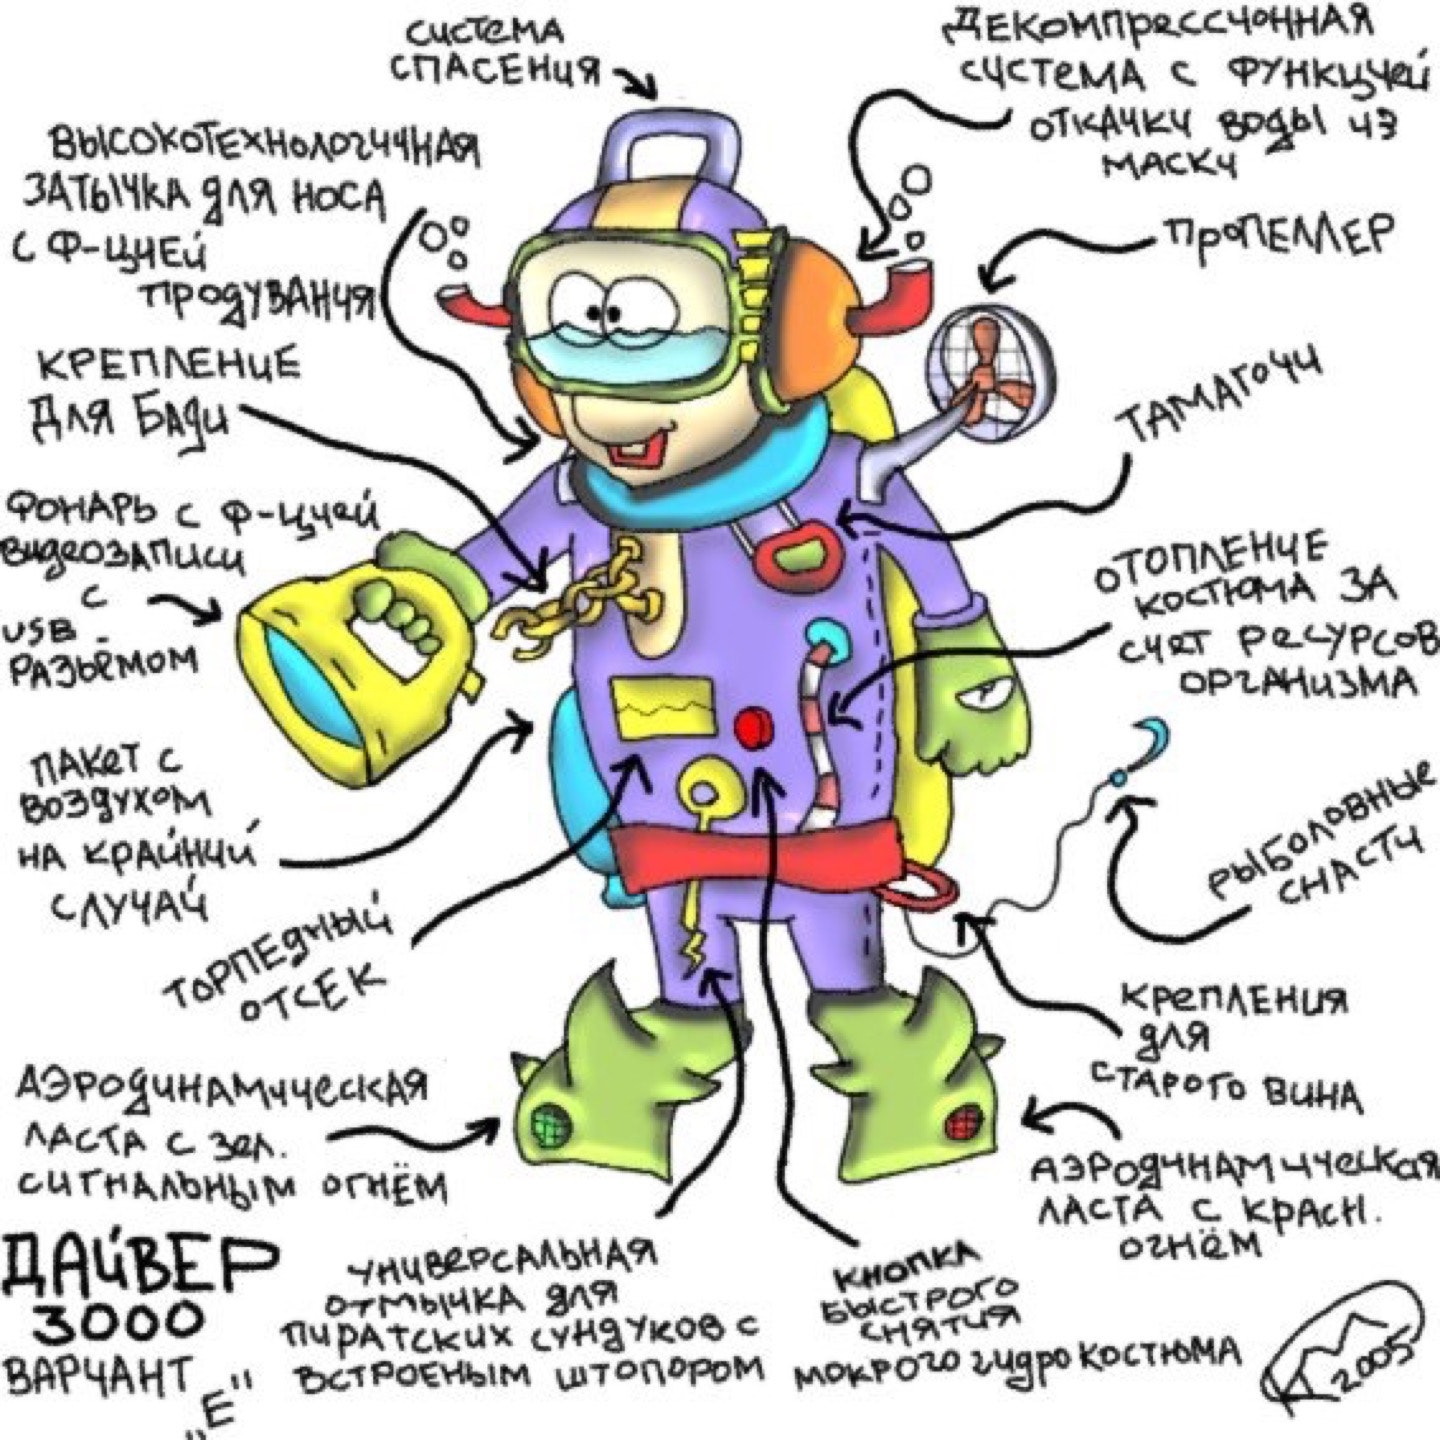 СИСТЕМА
СПАСЕНИЯ
ДЕКОМПРЕССИОННАЯ
СИСТЕМА С ФУНКЦИЕЙ
ОТКАЧКИ ВОДЫ ИЗ
МАСКИ
ВЫСОКОТЕХНОЛОГИЧНАЯ
ЗАТЫЧКА ДЛЯ НОСА
С Ф-ЦИЕЙ
ПРОДУВАНИЯ
ПРОПЕЛЛЕР
КРЕПЛЕНИЕ
ДЛЯ БАДИ
ТАМАГОЧИ
ФОНАРЬ С Ф-ЦИЕЙ
ВИДЕОЗАПИСИ
С
USB -
РАЗЬЁМОМ
ОТОПЛЕНИЕ
КОСТЮМА ЗА
СЧЕТ РЕСУРСОВ
ОРГАНИЗМА
ПАКЕТ С
ВОЗДУХОМ
НА КРАЙНИЙ
СЛУЧАЙ
РЫБОЛОВНЫЕ
СНАСТИ
ТОРПЕДНЫЙ
ОТСЕК
КРЕПЛЕНИЯ
ДЛЯ
СТАРОГО ВИНА
АЭРОДИНАМИЧЕСКАЯ
ЛАСТА С ЗЕЛ.
СИГНАЛЬНЫМ ОГНЁМ
АЭРОДИНАМИЧЕСКАЯ
ЛАСТА С КРАСН.
ОГНЁМ
ДАЙВЕР
3000
ВАРИАНТ
„Е"
УНИВЕРСАЛЬНАЯ
ОТМЫЧКА ДЛЯ
ПИРАТСКИХ СУНДУКОВ С
ВСТРОЕНЫМ ШТОПОРОМ
КНОПКА
БЫСТРОГО
СНЯТИЯ
МОКРОГО ГИДРОКОСТЮМА
2005